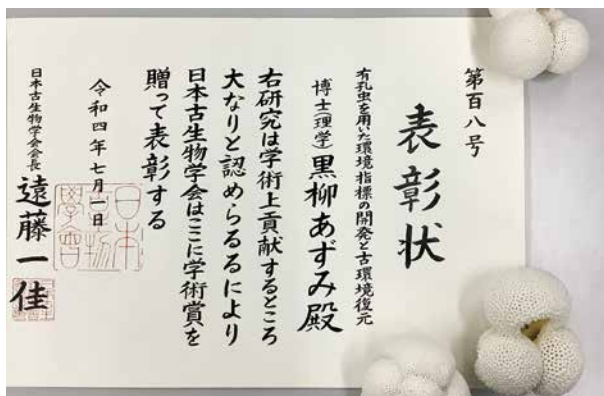 第百八号
表彰状
有孔虫を用いた環境指標の開発と古環境復元
博士(理学) 黒柳あずみ殿
右研究は学術上貢献するところ
大なりと認めらるるにより
日本古生物学会はここに学術賞を
贈って表彰する
令和四年七月一日
日本古生物学会会長 遠藤一佳